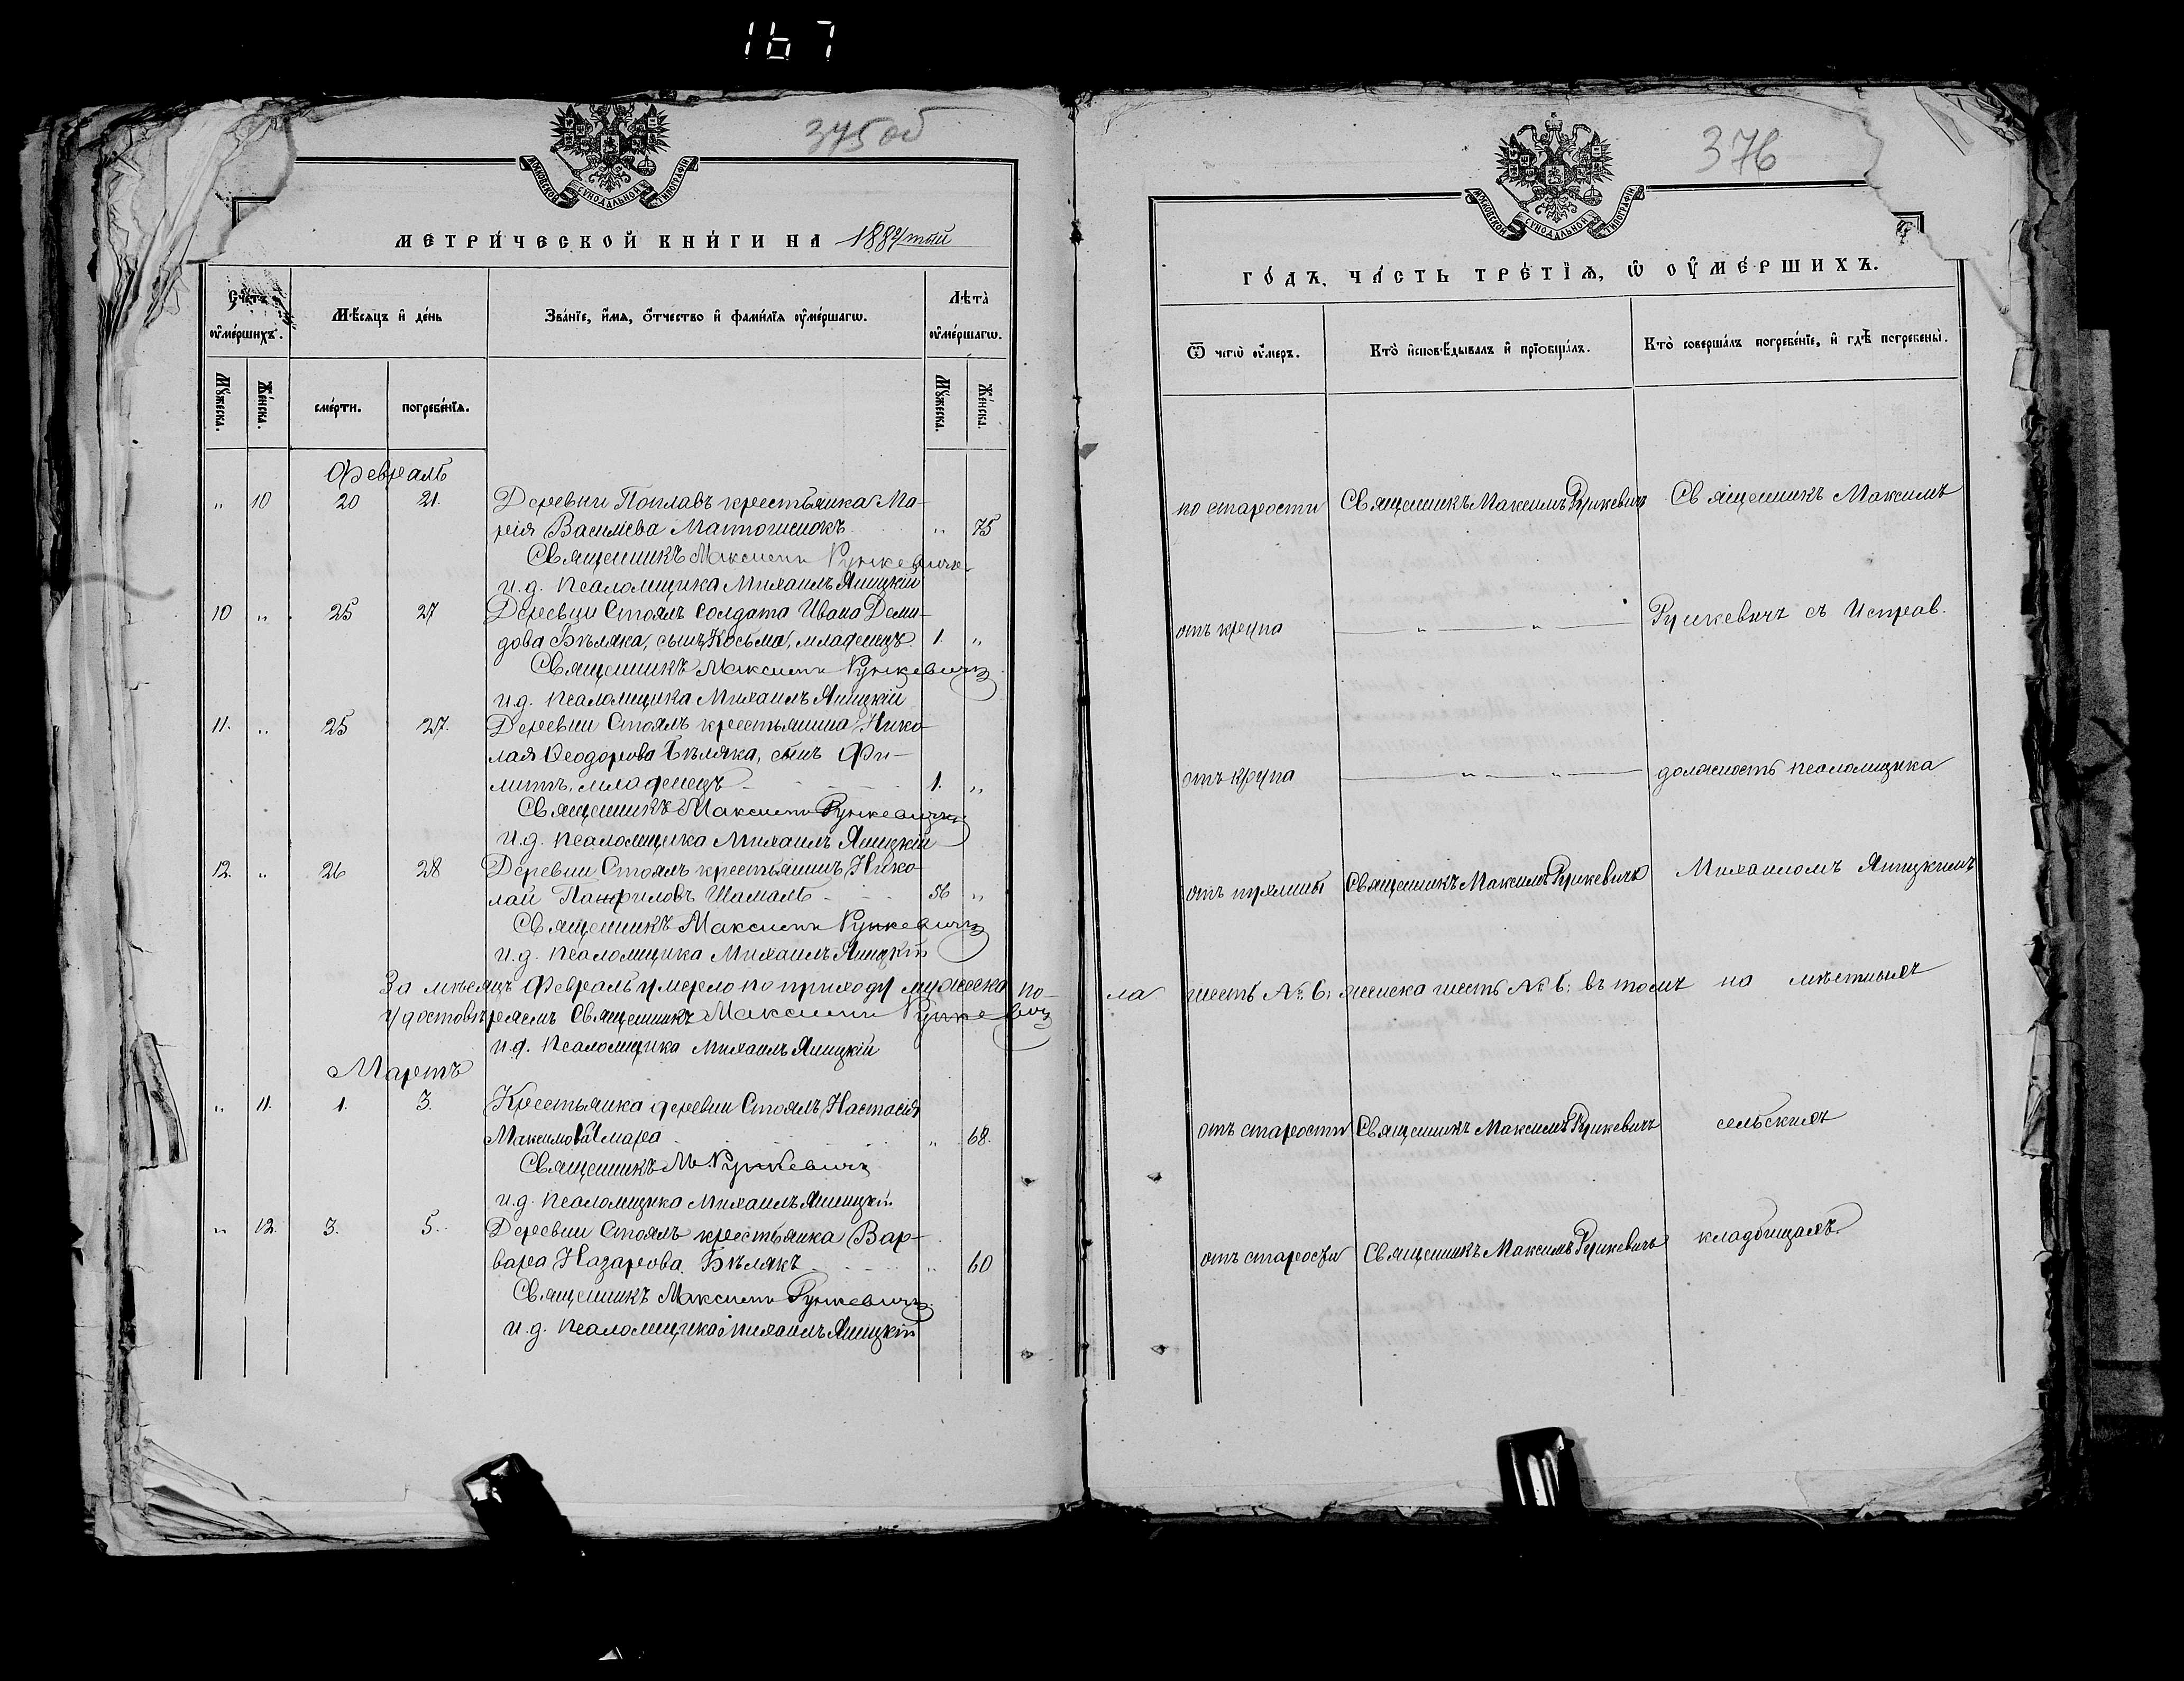 167
375об
МОСКОВСКОЙ СУНОДАЛЬНОЙ ТИПОГРАФІИ
МЕТРИЧЕСКОЙ КНИГИ НА 1884/тый
Счетъ оумершихъ.
Мѣсяцъ и день
Званіе, имя, отчество и фамилія оумершагω.
Лѣта оумершагω.
Мужеска.
Женска.
смерти.
погребенія.
Мужеска.
Женска.
Февраль
„ 10 20 21. Деревни Поплавъ крестьянка Ма-
рія Василіева „ 75
Священникъ Максимъ Рункевичъ
и.д. псаломщика Михаилъ Яницкій
10 „ 25 27 Деревни Стоялъ солдата Ивана Деми-
дова Бѣляка, сынъ Косьма, младенецъ. 1. „
Священникъ Максимъ Рункевичъ
и.д. псаломщика Михаилъ Яницкій
11. „ 25 27. Деревни Стоялъ крестьянина Нико-
лая Ѳеодорова Бѣляка, сынъ Фи-
липъ, младенецъ 1. „
Священникъ Максимъ Рункевичъ
и.д. псаломщика Михаилъ Яницкій
12. „ 26 28 Деревни Стоялъ крестьянинъ Нико-
лай Панфиловъ Шамаль 56 „
Священникъ Максимъ Рункевичъ
и.д. псаломщика Михаилъ Яницкій
За мѣсяцъ Февраль умерло по приходу мужеска по-
удостовѣряемъ Священникъ Максимъ Рункевичъ
и.д. псаломщика Михаилъ Яницкій
Мартъ
„ 11. 1. 3. Крестьянка деревни Стоялъ Настасія
Максимова „ 68.
Священникъ М. Рункевичъ
и.д. псаломщика Михаилъ Яницкій
„ 12. 3. 5. Деревни Стоялъ крестьянка Вар-
вара Назарова Бѣлякъ „ 60
Священникъ Максимъ Рункевичъ
и.д. псаломщика Михаилъ Яницкій
376
МОСКОВСКОЙ СУНОДАЛЬНОЙ ТИПОГРАФІИ
ГОДЪ, ЧАСТЬ ТРЕТІЯ, Ѡ ОУМЕРШИХЪ.
Ѿ чегω оумеръ.
Кто исповѣдывалъ и пріобщалъ.
Кто совершалъ погребеніе, и гдѣ погребены.
по старости Священникъ Максимъ Рункевичъ Священникъ Максимъ
отъ крупа „ „ Рункевичъ съ Исправ.
отъ крупа „ „ должность псаломщика
отъ Священникъ Максимъ Рункевичъ Михаиломъ Яницкимъ
ла шесть № 6; женска шесть № 6; въ томъ на мѣстныхъ
отъ старости Священникъ Максимъ Рункевичъ сельскихъ
отъ старости Священникъ Максимъ Рункевичъ кладбищахъ.